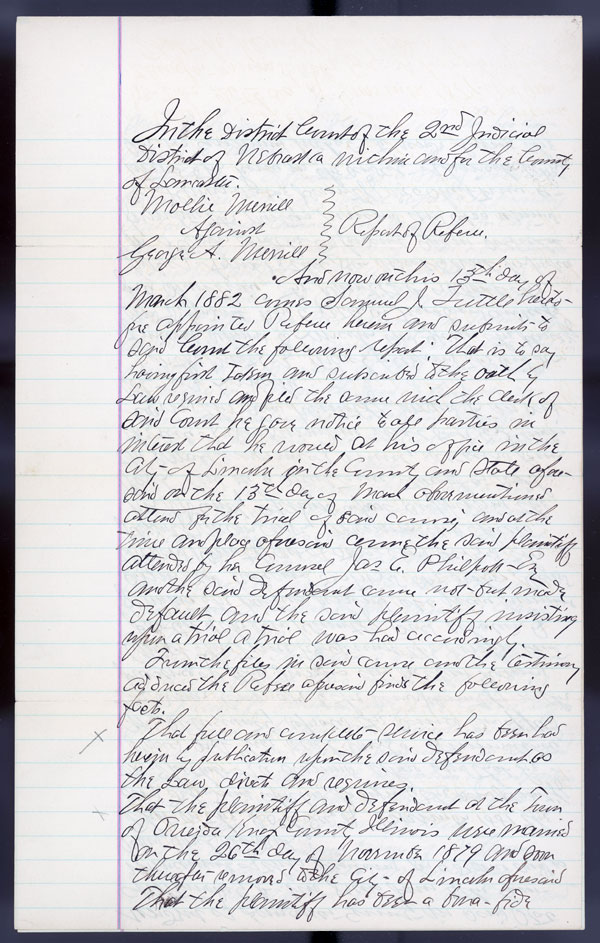 In the District Court of the 2nd Judicial
District of Nebraska within and for the County
of Lancaster.
Mollie Merrill
Against
Report of Referee.
George A. Merrill
And now on this 13th day of
March 1882 comes Samuel J. Tuttle hereto-
fore appointed Referee herein and submits to
said Court the following report: That is to say
having first taken and subscribed to the oath by
Law required and filed the same with the clerk of
said Court he gave notice to all parties in
interest that he would at his office in the
City of Lincoln in the County and State afore-
said on the 13th day of March above mentioned
attend for the trial of said cause, and at the
time and place aforesaid came the said plaintiff
attended by her Counsel Jas E. Philpott Esq
and the said defendant came not but made
default, and the said plaintiff insisting
upon a trial a trial was had accordingly.
From the files in said cause and the testimony
adduced the Referee aforesaid finds the following
facts.
That full and complete service has been had
herein by publication upon the said defendant as
the Law directs and requires.
That the plaintiff and defendant at the Town
of Oneida Knox County, Illinois were married
on the 26th day of November 1879 and soon
thereafter removed to the City of Lincoln aforesaid
That the plaintiff has been a bona-fide